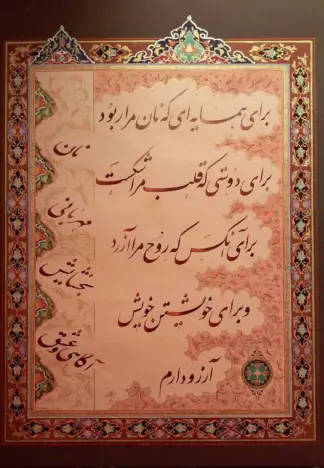 برای همسایه ای که نان مرا ربود
نان
برای دوستی که قلب مرا شکست
مهربانی
برای آنکس که روح مرا آزرد
بخشایش
و برای خویشتن خویش
آگاهی و عشق
آرزو دارم